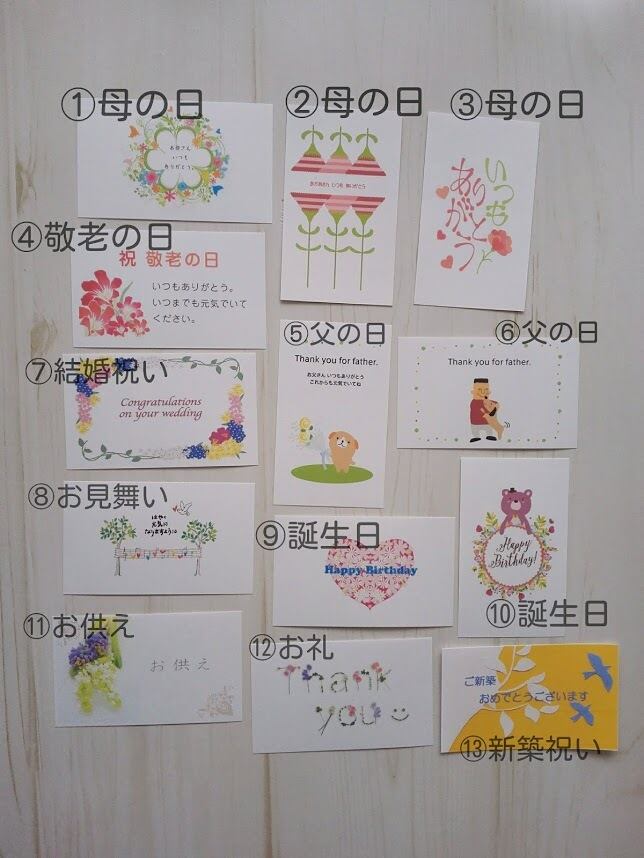 ①母の日
お母さん
いつも
ありがとう
②母の日
お母さん いつも ありがとう
③母の日
いつも
ありがとう
④敬老の日
祝 敬老の日
いつもありがとう。
いつまでも元気でいて
ください。
⑤父の日
Thank you for father.
お父さん いつもありがとう
これからも元気でいてね
⑥父の日
Thank you for father.
⑦結婚祝い
Congratulations
on your wedding
⑧お見舞い
はやく
元気に
なりますように
⑨誕生日
Happy Birthday
⑩誕生日
Happy
Birthday!
⑪お供え
お供え
⑫お礼
Thank
you
⑬新築祝い
ご新築
おめでとうございます